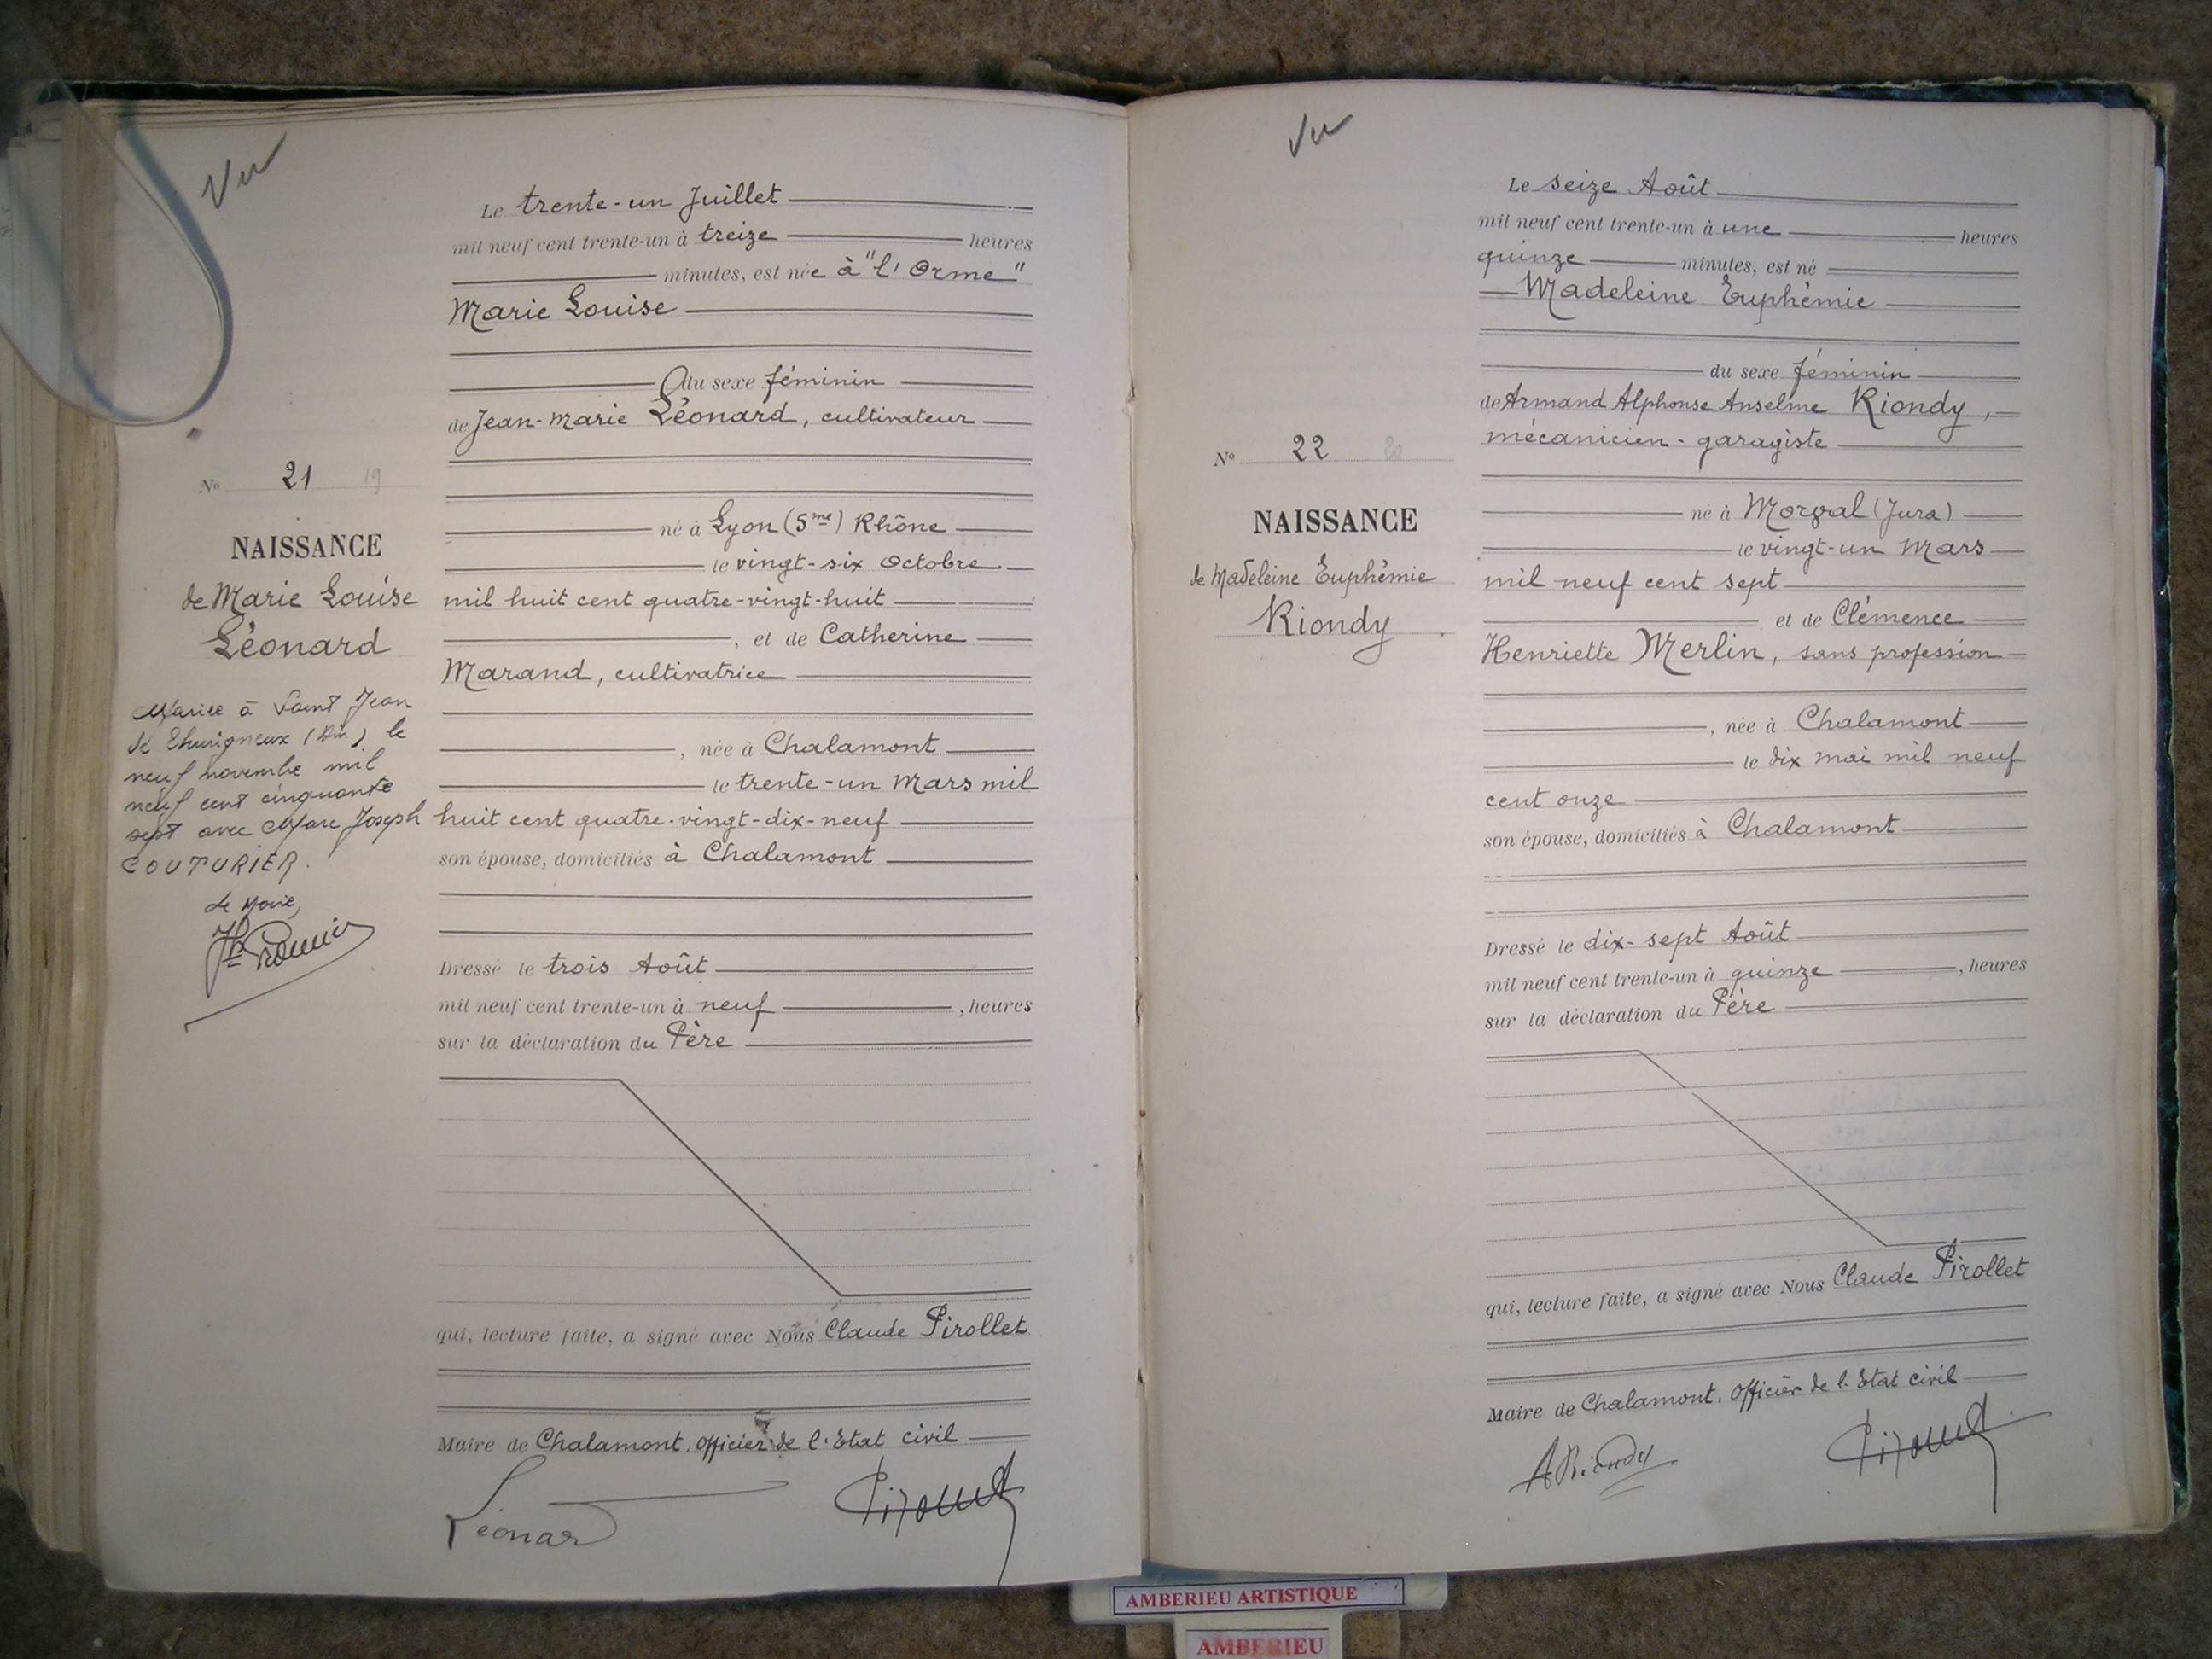 Vu
Le trente-un Juillet
mil neuf cent trente-un à treize heures
minutes, est née à "l'Orme"
Marie Louise
du sexe féminin
de Jean-Marie Léonard, cultivateur
né à Lyon (5me) Rhône
le vingt-six Octobre
mil huit cent quatre-vingt-huit
, et de Catherine
Marand, cultivatrice
, née à Chalamont
le trente-un Mars mil
huit cent quatre-vingt-dix-neuf
son épouse, domiciliés à Chalamont
Dressé le trois Août
mil neuf cent trente-un à neuf , heures
sur la déclaration du Père
qui, lecture faite, a signé avec Nous Claude Pirollet
Maire de Chalamont. Officier de l'Etat civil
Léonard
Pirollet
No 21 19
NAISSANCE
de Marie Louise
Léonard
Mariée à Saint Jean
de Thurigneux (Ain) le
neuf novembre mil
neuf cent cinquante
sept avec Marc Joseph
COUTURIER.
Le Maire,
Vu
Le seize Août
mil neuf cent trente-un à une heures
quinze minutes, est né
Madeleine Euphémie
du sexe féminin
de Armand Alphonse Anselme Riondy,
mécanicien-garagiste
né à Morval (Jura)
le vingt-un Mars
mil neuf cent sept
et de Clémence
Henriette Merlin, sans profession
, née à Chalamont
le dix mai mil neuf
cent onze
son épouse, domiciliés à Chalamont
Dressé le dix-sept Août
mil neuf cent trente-un à quinze , heures
sur la déclaration du Père
qui, lecture faite, a signé avec Nous Claude Pirollet
Maire de Chalamont. Officier de l'Etat civil
ARiondy
Pirollet
No 22 20
NAISSANCE
de Madeleine Euphémie
Riondy
AMBERIEU ARTISTIQUE
AMBERIEU